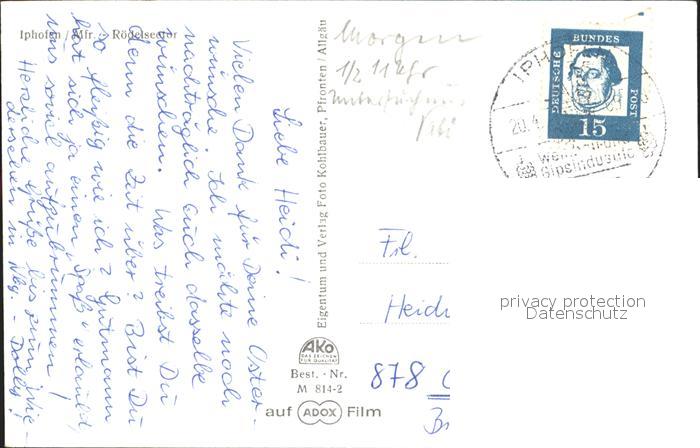 Iphofen / Mfr. - Rödelseetor
Liebe Heidi!
Vielen Dank für Deine Oster-
wünsche. Ich möchte noch
nachträglich Euch dasselbe
wünschen. Was treibst Du
denn die Zeit über? Bist Du
so fleißig wie ich?
hat sich ja einen "Spaß" erlaubt,
uns soviel aufzubrummen!
Herzliche Grüße bis zum Wie-
dersehen in Nbg. - Dolly!
Eigentum und Verlag Foto Kohlbauer, Pfronten / Allgäu
Morgen
1/2 11 Uhr
DEUTSCHE BUNDES POST
15
IPHO
20.4.
Wein
Gipsindustrie
Frl.
Heidi
878
privacy protection
Datenschutz
AKO
DAS ZEICHEN
FÜR QUALITÄT
Best. - Nr.
M 814-2
auf ADOX Film